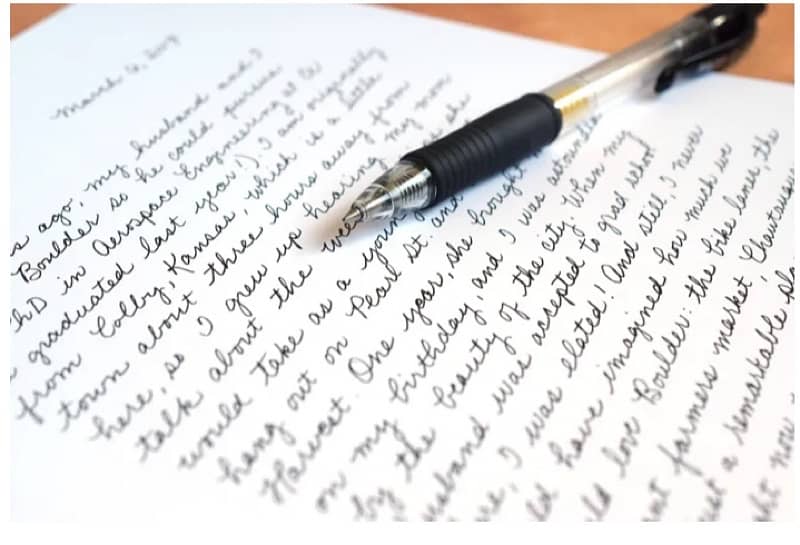 March
s ago, my husband and I
Boulder so he could pursue
PhD in Aerospace Engineering at
graduated last year!). I am originally
from Colby, Kansas, which is a little
town about three hours away from
here, so I grew up hearing my mom
talk about the
would take as a young
hang out on Pearl St. and
Harvest. One year, she brought
on my birthday, and I was astounded
by the beauty of the city. When my
husband was accepted to grad school
I was elated! And still, I never
have imagined how much we
love Boulder: the bike lanes, the
farmers market, Chautauqua
a remarkable
now